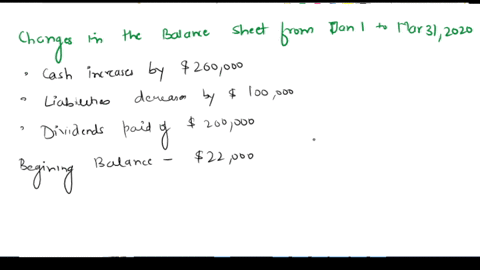 Changes in the Balance sheet from Jan 1 to Mar 31, 2020
• Cash increases by $200,000
• Liabilities decrease by $ 100,000
• Dividends paid of $ 200,000
Begining Balance - $22,000